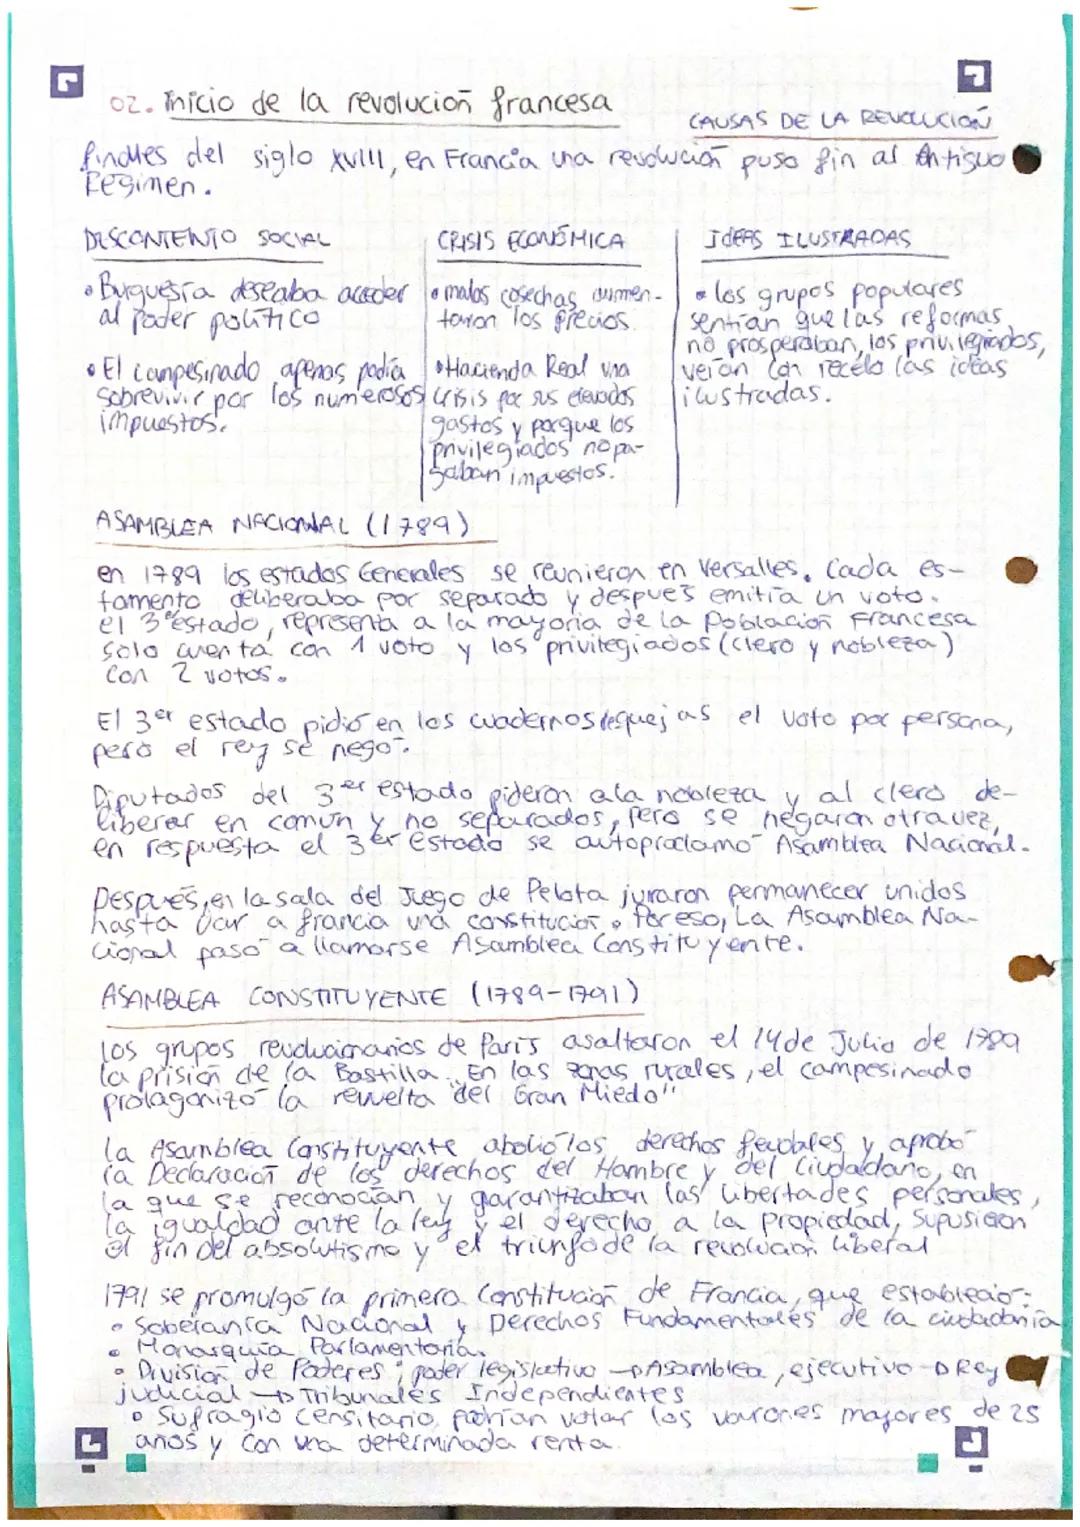 02. Inicio de la revolución francesa
CAUSAS DE LA REVOLUCIÓN
finales del siglo XVIII, en Francia una revolución puso fin al Antiguo
Régimen.
DESCONTENTO SOCIAL
• Burguesía deseaba acceder
al poder político
• El campesinado apenas podía
sobrevivir por los numerosos
impuestos.
CRISIS ECONÓMICA
• malas cosechas aumen-
taron los precios.
• Hacienda Real una
crisis por sus elevados
gastos y porque los
privilegiados no pa-
gaban impuestos.
IDEAS ILUSTRADAS
• los grupos populares
sentían que las reformas
no prosperaban, los privilegiados,
veían con recelo las ideas
ilustradas.
ASAMBLEA NACIONAL (1789)
en 1789 los estados Generales se reunieron en Versalles. Cada es-
tamento deliberaba por separado y después emitía un voto.
el 3er estado, representa a la mayoría de la población Francesa
solo cuenta con 1 voto y los privilegiados (clero y nobleza)
con 2 votos.
El 3er estado pidió en los cuadernos de quejas el voto por persona,
pero el rey se negó.
Diputados del 3er estado pideron a la nobleza y al clero de-
liberar en común y no separados, pero se negaron otra vez,
en respuesta el 3er estado se autoproclamó Asamblea Nacional.
Después, en la sala del Juego de Pelota juraron permanecer unidos
hasta dar a francia una constitución. Por eso, La Asamblea Na-
cional pasó a llamarse Asamblea Constituyente.
ASAMBLEA CONSTITUYENTE (1789-1791)
los grupos revolucionarios de París asaltaron el 14 de Julio de 1789
la prisión de la Bastilla. En las zonas rurales, el campesinado
protagonizó la revuelta del "Gran Miedo"
La Asamblea Constituyente abolió los derechos feudales y aprobó
la Declaración de los derechos del Hombre y del Ciudadano, en
la que se reconocían y garantizaban las libertades personales,
la igualdad ante la ley y el derecho a la propiedad, Supusieron
el fin del absolutismo y el triunfo de la revolución liberal
1791 se promulgó la primera Constitución de Francia, que estableció:
• Soberanía Nacional y Derechos Fundamentales de la ciudadanía
• Monarquía Parlamentaria.
• División de Poderes; poder legislativo → Asamblea, ejecutivo → Rey
judicial → Tribunales Independientes
• Sufragio censitario, podrían votar los varones mayores de 25
años y con una determinada renta.